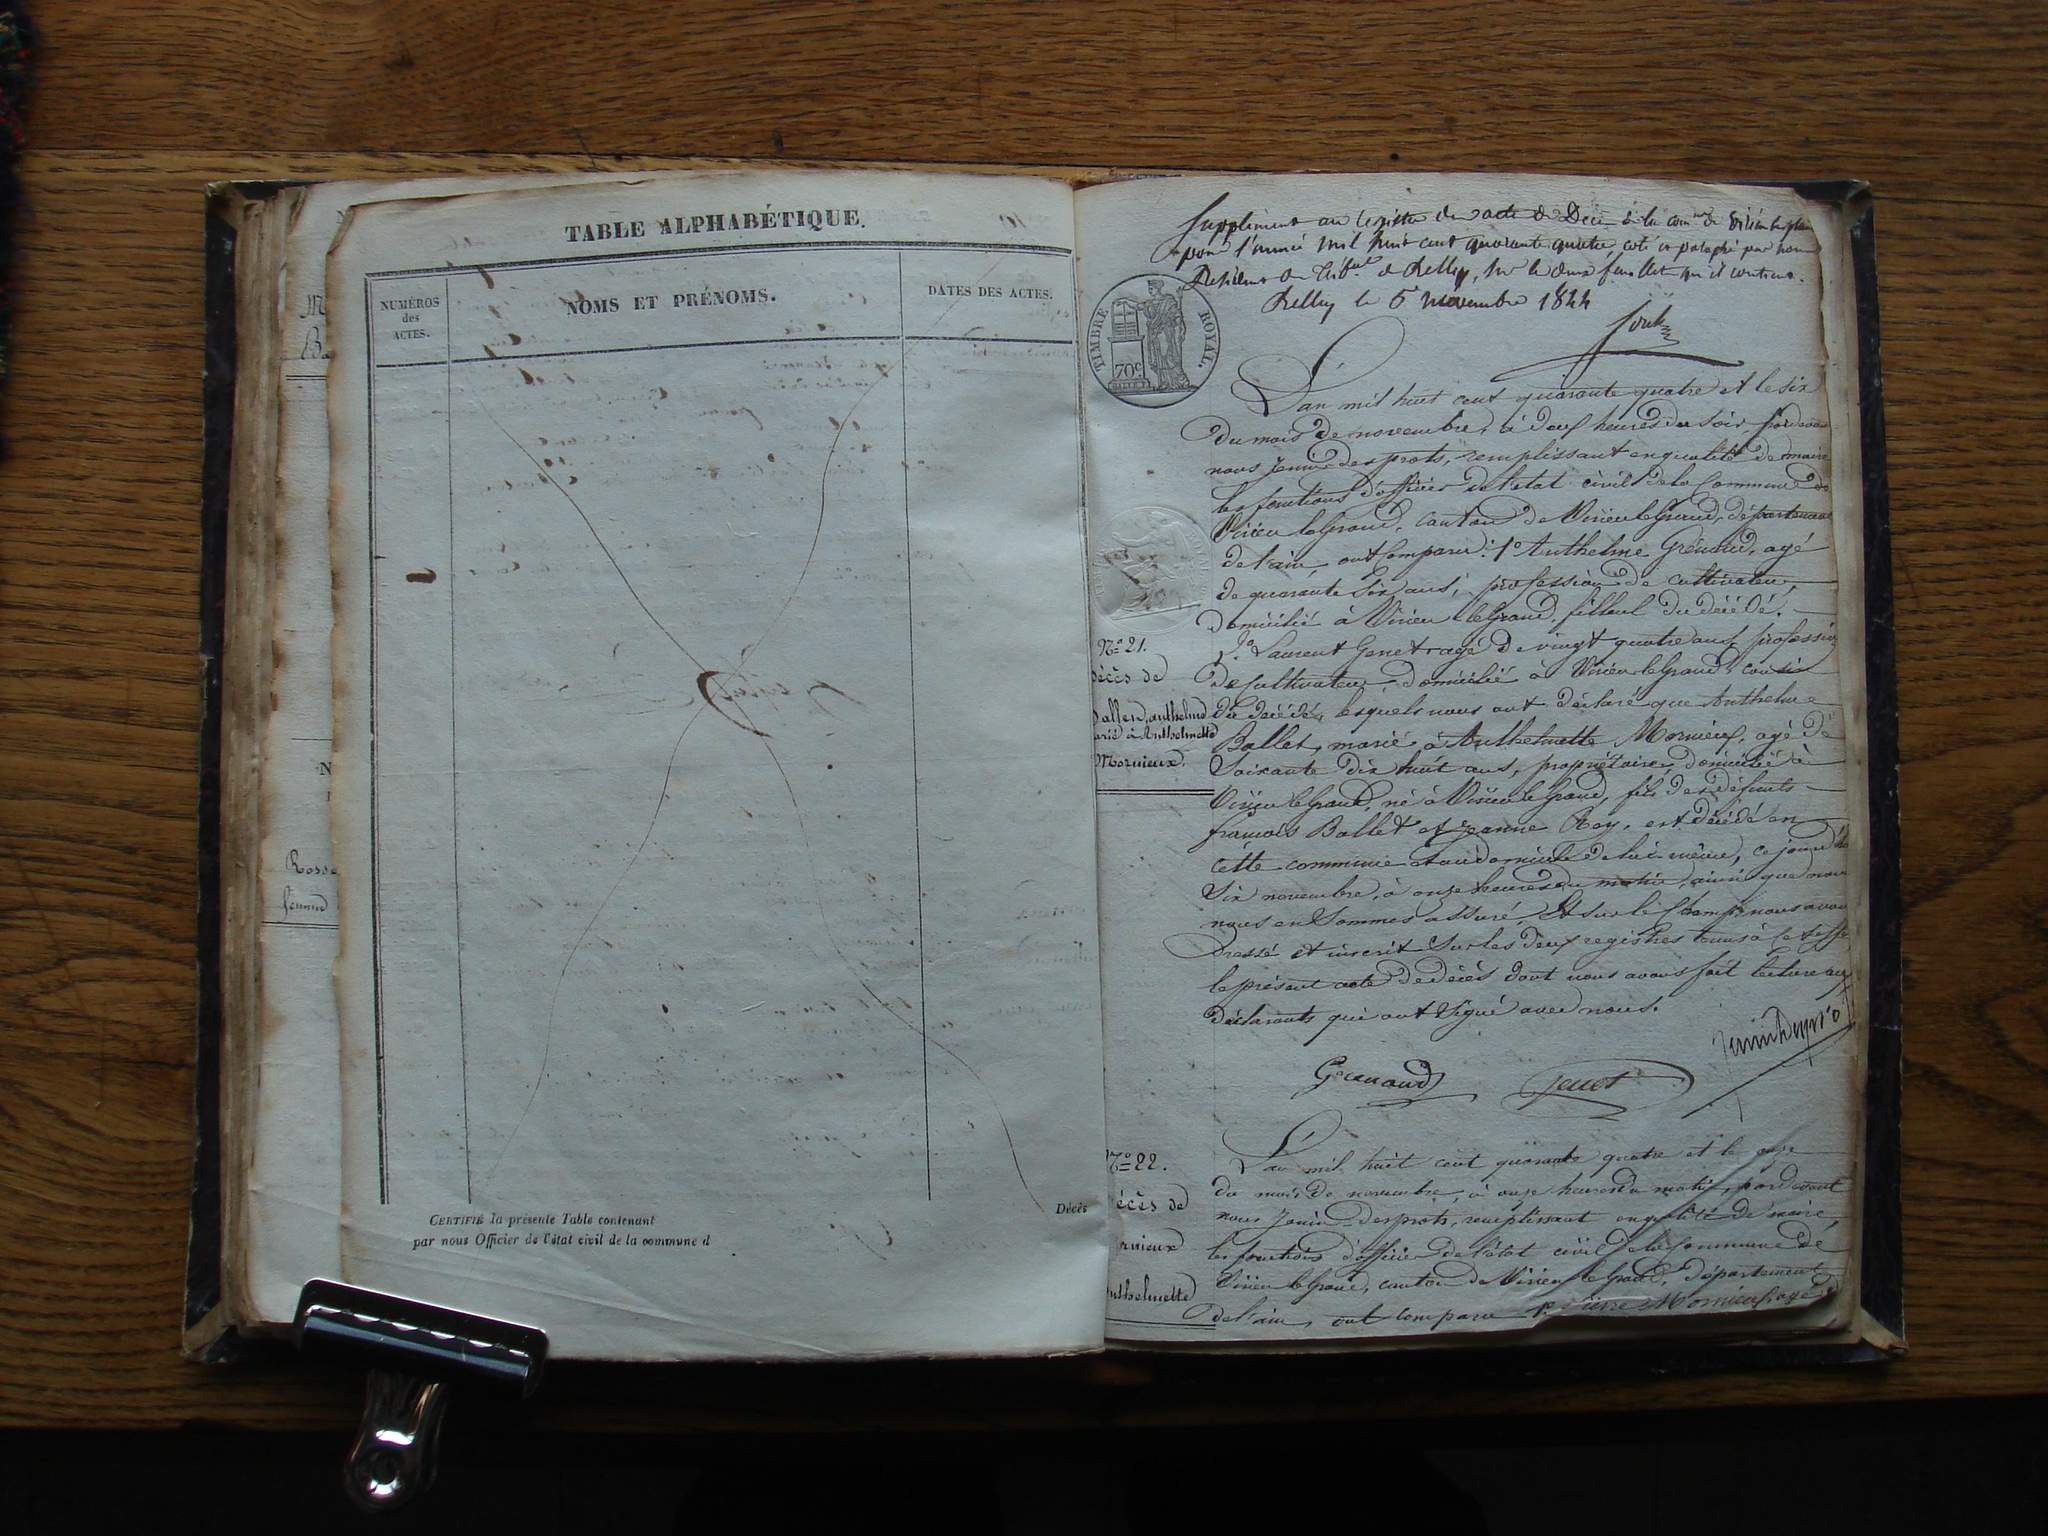 TABLE ALPHABÉTIQUE.
NUMÉROS
des
ACTES.
NOMS ET PRÉNOMS.
DATES DES ACTES.
Rosse
Décès
CERTIFIÉ la présente Table contenant
par nous Officier de l'état civil de la commune d
Supplément au registre des actes de Décès de la comne de
pour l'année mil huit cent quarante quatre, coté et paraphé par nous
Président du Tribal de Belley, sur le deux feuillets qu'il contient.
Belley le 5 novembre 1844
TIMBRE ROYAL.
70c
L'an mil huit cent quarante quatre et le six
du mois de novembre, à deux heures du soir, pardevant
nous Jenin desprots, remplissant en qualité de maire
les fonctions d'officier de l'état civil de la Commune de
Virieu le Grand, canton de Virieu le Grand, département
de l'ain, ont comparu: 1o Anthelme Grénaud, agé
de quarante six ans, profession de cultivateur,
domicilié à Virieu le Grand, filleul du décédé.
2o Laurent Genet, agé de vingt quatre ans, profession
de cultivateur, domicilié à Virieu le Grand, cousin
du décédé, lesquels nous ont déclaré que Anthelme
Ballet, marié à Anthelmette Mornieux, agé de
soixante dix huit ans, propriétaire, domicilié à
Virieu le Grand, né à Virieu le Grand, fils des défunts
françois Ballet et jeanne Rey, est décédé en
cette commune et au domicile de lui-même, ce jourd'hui
six novembre, à onze heures du matin, ainsi que nous
nous en sommes assuré. Et sur le champ nous avons
dressé et inscrit sur les deux registres tenus à cet effet
le présent acte de décès dont nous avons fait lecture aux
déclarants qui ont signé avec nous.
No 21.
décès de
Ballet, anthelme
marié à Anthelmette
Mornieux.
Grenaud
Genet
Jenin Desprots
No 22.
décès de
Mornieux
Anthelmette
L'an mil huit cent quarante quatre et le onze
du mois de novembre, à onze heures du matin, pardevant
nous Jenin desprots, remplissant en qualité de maire,
les fonctions d'officier de l'état civil de la Commune de
Virieu le Grand, canton de Virieu le Grand, département
de l'ain, ont comparu 1o pierre Mornieux, agé d